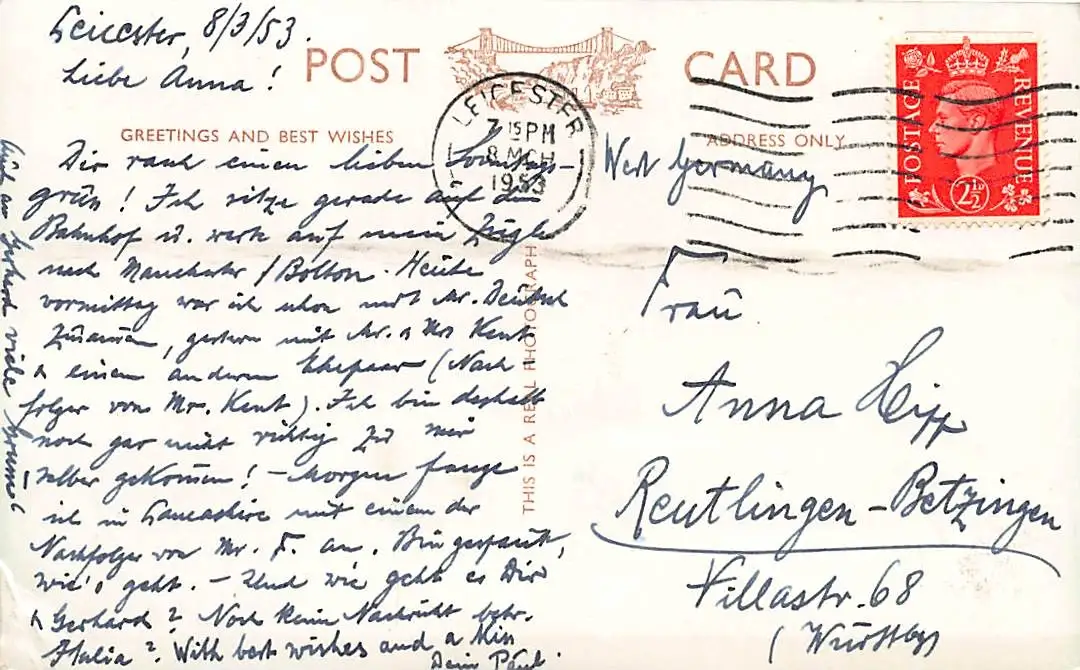 Leicester, 8/3/53.
Liebe Anna!
POST CARD
GREETINGS AND BEST WISHES
ADDRESS ONLY
LEICESTER
7 15 PM
8 MCH
1953
POSTAGE
REVENUE
2½D
Dir rasch einen lieben Sonntags-
grüß! Ich sitze gerade auf dem
Bahnhof u. warte auf mein Zügle
nach Manchester / Bolton. Heute
vormittag war ich schon mit Mr. Deutsch
zusammen, gestern mit Mr. & Mrs Kent
& einem anderen Ehepaar (Nach-
folger von Mr. Kent). Ich bin deshalb
noch gar nicht richtig zu mir
selber gekommen! – Morgen fange
ich in Lancashire mit einem der
Nachfolger von Mr. F. an. Bin gespannt,
wie's geht. – Und wie geht es Dir
& Gerhard? Noch keine Nachricht betr.
Italia? With best wishes and a kiss
Dein Paul.
Auch an Gerhard viele Grüsse
THIS IS A REAL PHOTOGRAPH
West Germany
Frau
Anna Hipp
Reutlingen-Betzingen
Villastr. 68
(Württbg)